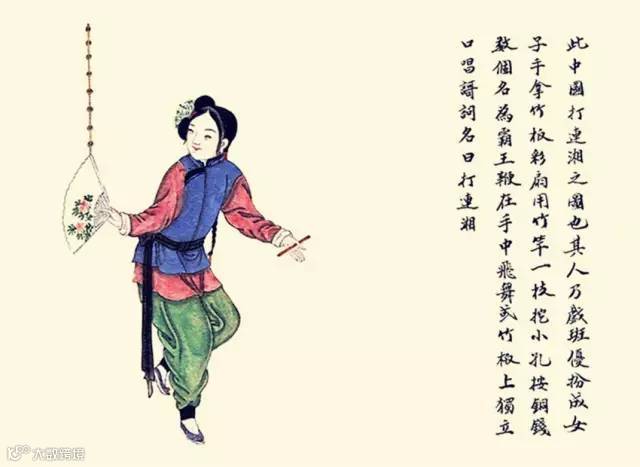 此中國打連湘之圖也其人乃戲班優扮成女
子手拿竹板彩扇用竹竿一枝挖小孔按銅錢
數個名為霸王鞭在手中飛舞或竹板上獨立
口唱謌詞名曰打連湘
大数跨境